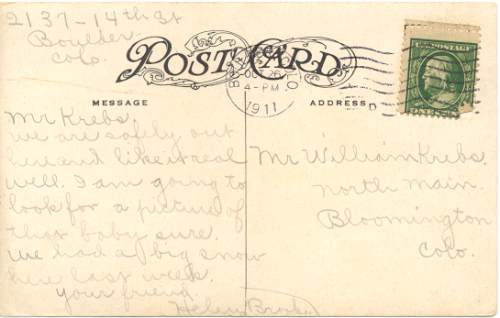 2137-14th St
Boulder
Colo.
POST CARD
OC 26
4-PM
1911
D
MESSAGE
ADDRESS
Mr Krebs.
we are safely out
here and like it real
well. I am going to
look for a picture of
that baby sure.
we had a big snow
here last week.
your friend.
Helen
Mr William Krebs.
North Main.
Bloomington
Colo.